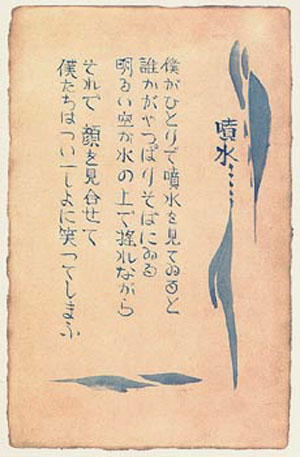 噴水……
僕がひとりで噴水を見てゐると
誰かがやつぱりそばにゐる
明るい空が水の上で搖れながら
それで 顔を見合せて
僕たちはつい一しよに笑つてしまふ